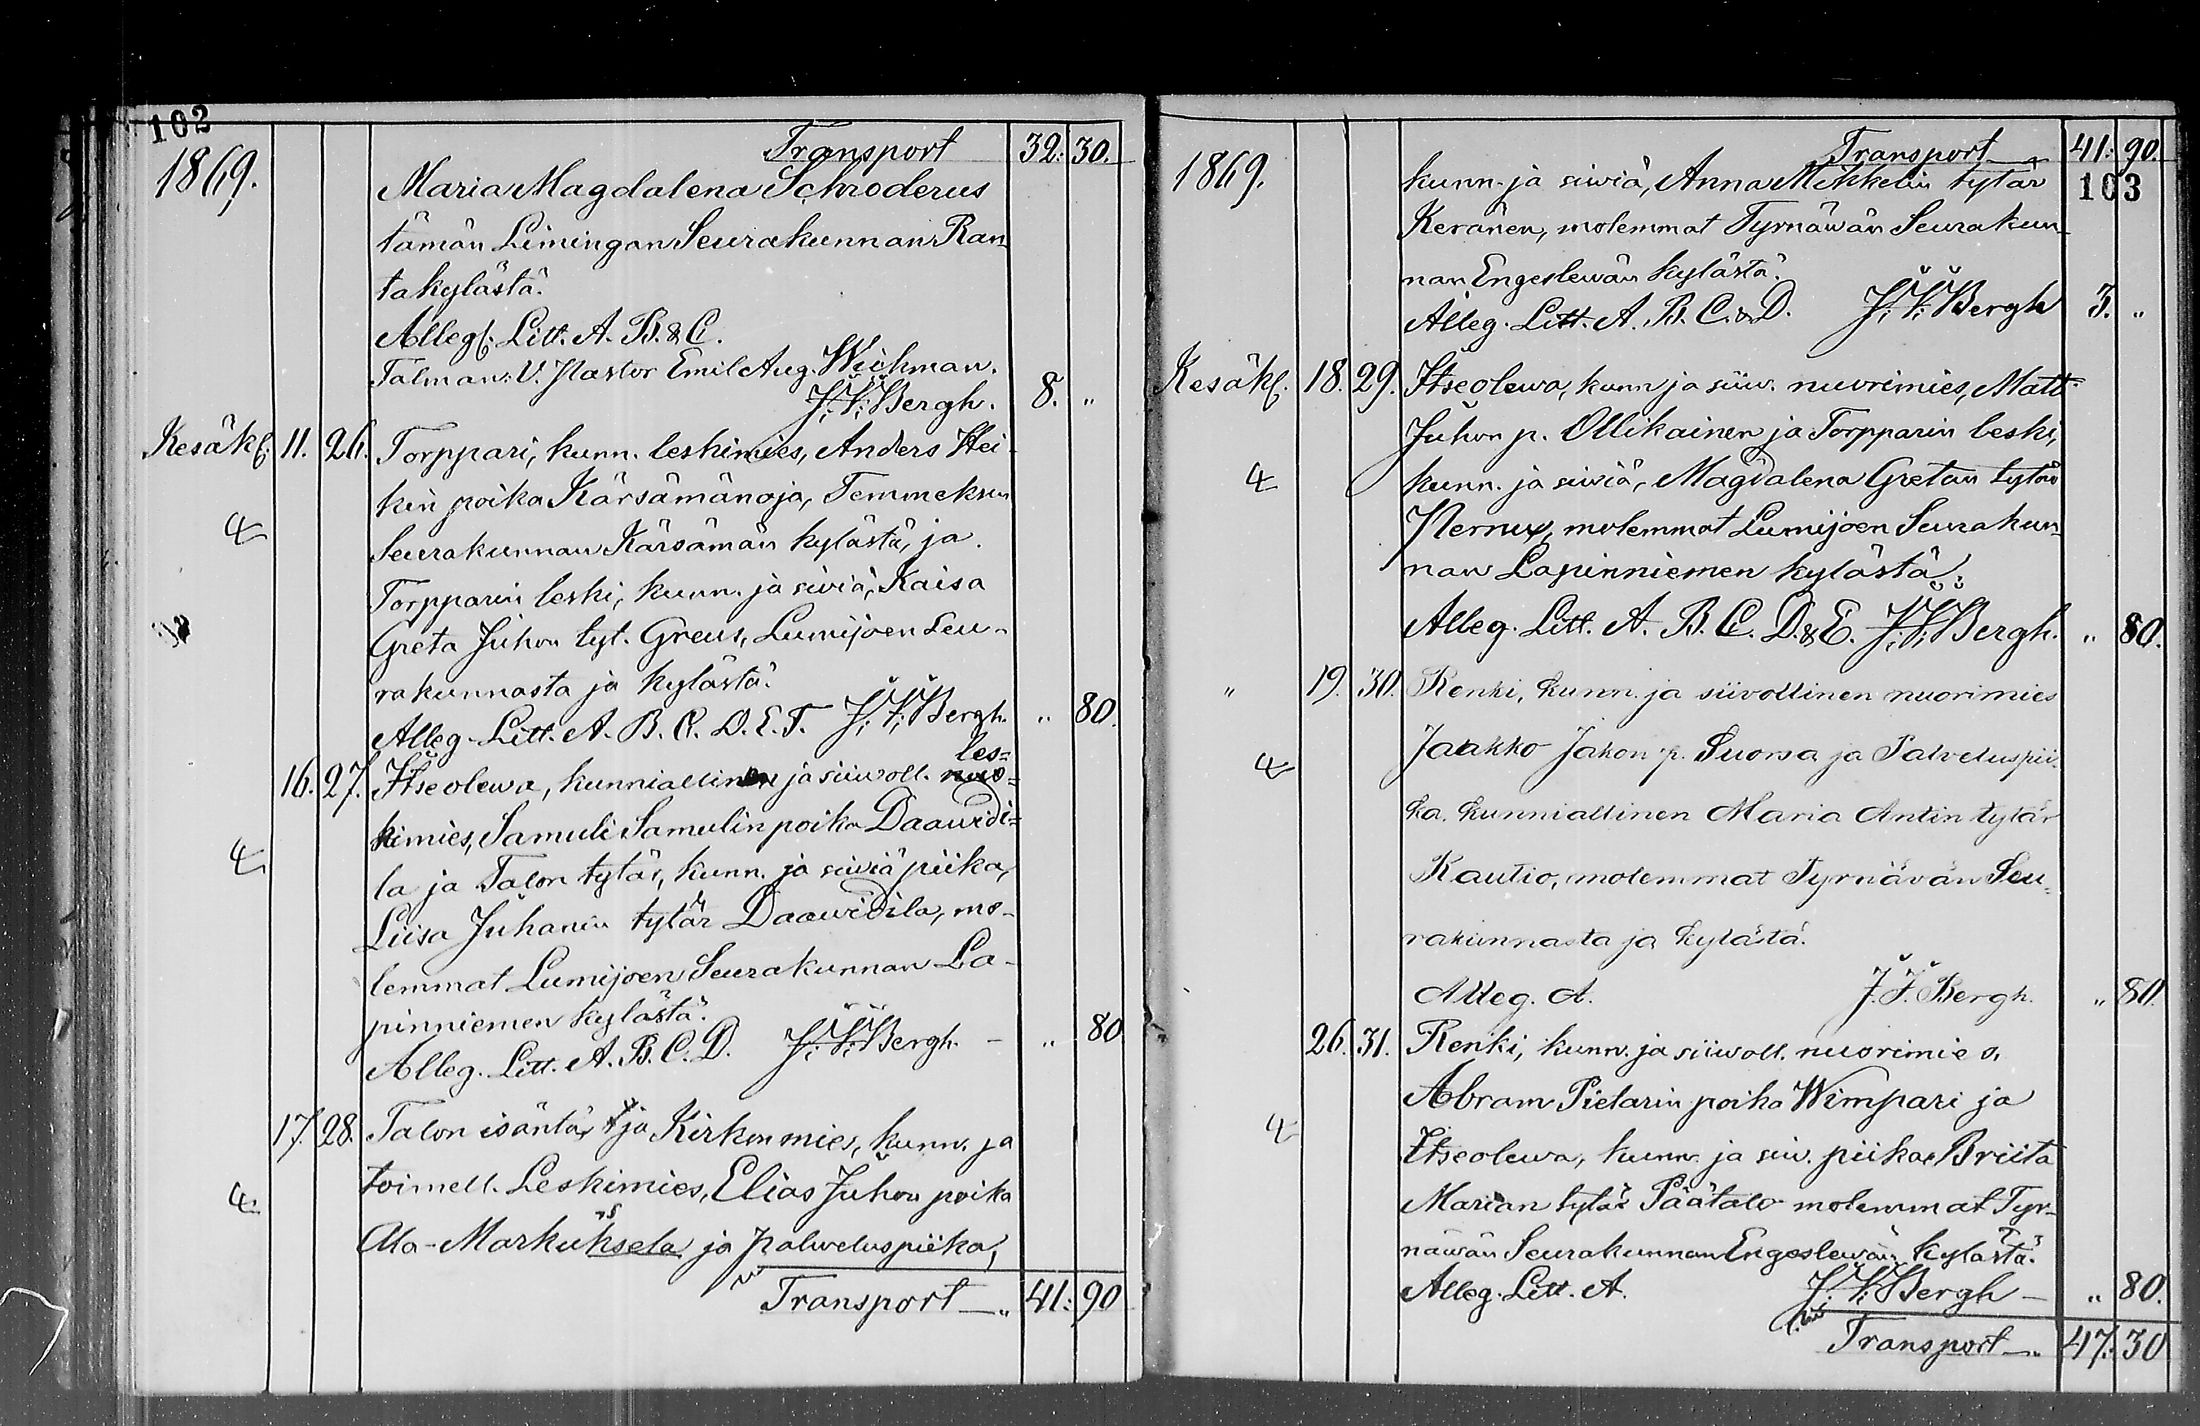 102
1869.
Transport 32: 30.
Maria Magdalena Schroderus
tämän Limingan Seurakunnan Ran-
takylästä.
Alleg: Litt. A. B. & C.
Talman: V. Pastor Emil Aug. Wichman.
J. F. Bergh. 8. "
Kesäk: 11. 26. Torppari, kunn. leskimies, Anders Hei-
kin poika Kärsämänoja, Temmeksen
Seurakunnan Kärsämän kylästä, ja
Torpparin leski, kunn. ja siviä, Kaisa
Greta Juhon tyt. Greus, Lumijoen Seu-
rakunnasta ja kylästä.
Alleg. Litt. A. B. C. D. E. F. J. F. Bergh. " 80.
les=
16. 27. Itseolewa, kunniallinen ja siiwoll. nuo=
kimies, Samuli Samulin poika Daawidi=
la ja Talon tytär, kunn. ja siwiä piika,
Liisa Juhanin tytär Daawidila, mo-
lemmat Lumijoen Seurakunnan La-
pinniemen kylästä.
Alleg. Litt. A. B. C. D. J. F. Bergh. - " 80
17. 28. Talon isäntä, ja Kirkonmies, kunn. ja
toimell. Leskimies, Elias Juhon poika
Ala-Markuksela ja palweluspiika,
Transport " 41: 90
Transport 41: 90.
103
1869.
kunn. ja siwiä, Anna Mikkelin tytär
Keränen, molemmat Tyrnäwän Seurakun-
nan Engeslewän kylästä.
Alleg. Litt. A. B. C. & D. J. F. Bergh 3. "
Kesäk: 18. 29. Itseolewa, kunn ja siiw. nuorimies, Matt
Juhon p. Ollikainen ja Torpparin leski,
kunn. ja siwiä, Magdalena Gretan tytär
Pernu, molemmat Lumijoen Seurakun-
nan Lapinniemen kylästä.
Alleg. Litt. A. B. C. D. & E. J. F. Bergh. " 80.
" 19. 30. Renki, kunn. ja siivollinen nuorimies
Jaakko Jakon p. Suorsa ja Palveluspii-
ka, kunniallinen Maria Antin tytär
Kautio, molemmat Tyrnävän Seu-
rakunnasta ja kylästä.
Alleg. A. J. F. Bergh. " 80.
26. 31. Renki, kunn. ja siiwoll. nuorimies,
Abram Pietarin poika Wimpari ja
Itseolewa, kunn. ja siw. piika Briita
Marian tytär Päätalo molemmat Tyr-
näwän Seurakunnan Engeslewän kylästä.
Alleg. Litt. A. J. F. Bergh - " 80.
Transport " 47: 30